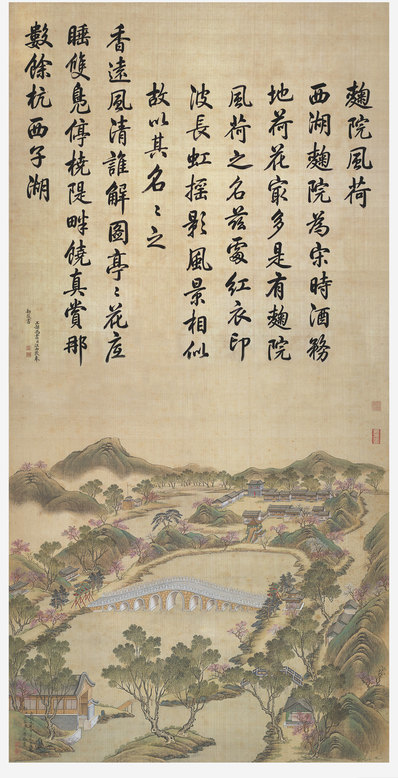 麯院風荷
西湖麯院為宋時酒務
地荷花最多是有麯院
風荷之名茲處紅衣印
波長虹搖影風景相似
故以其名〻之
香遠風清誰解圖亭〻花底
睡雙鳧停橈隄畔饒真賞那
數餘杭西子湖